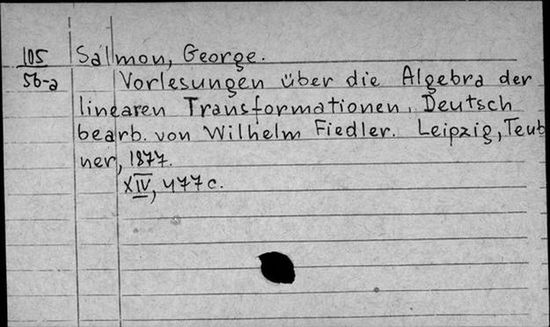 105 Salmon, George.
56-a Vorlesungen über die Algebra der
linearen Transformationen. Deutsch
bearb. von Wilhelm Fiedler. Leipzig, Teub
ner, 1877.
XIV, 477 c.